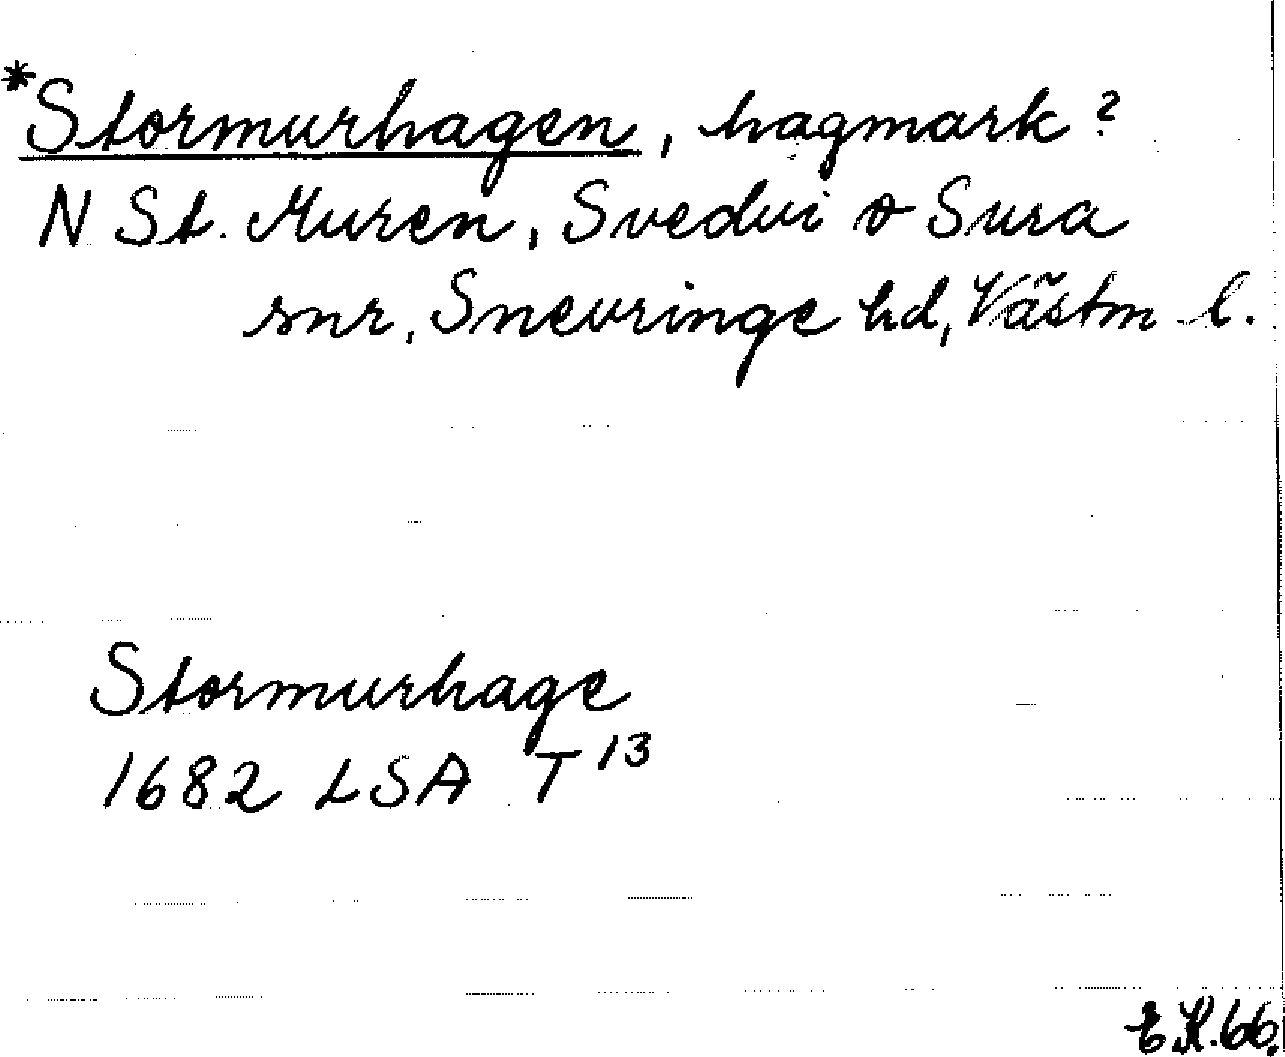 *Stormurhagen, hagmark?
N St. Muren, Svedvi o Sura
snr, Snevringe hd, Västm l.
Stormurhage
1682 LSA T 13
E K. 66.